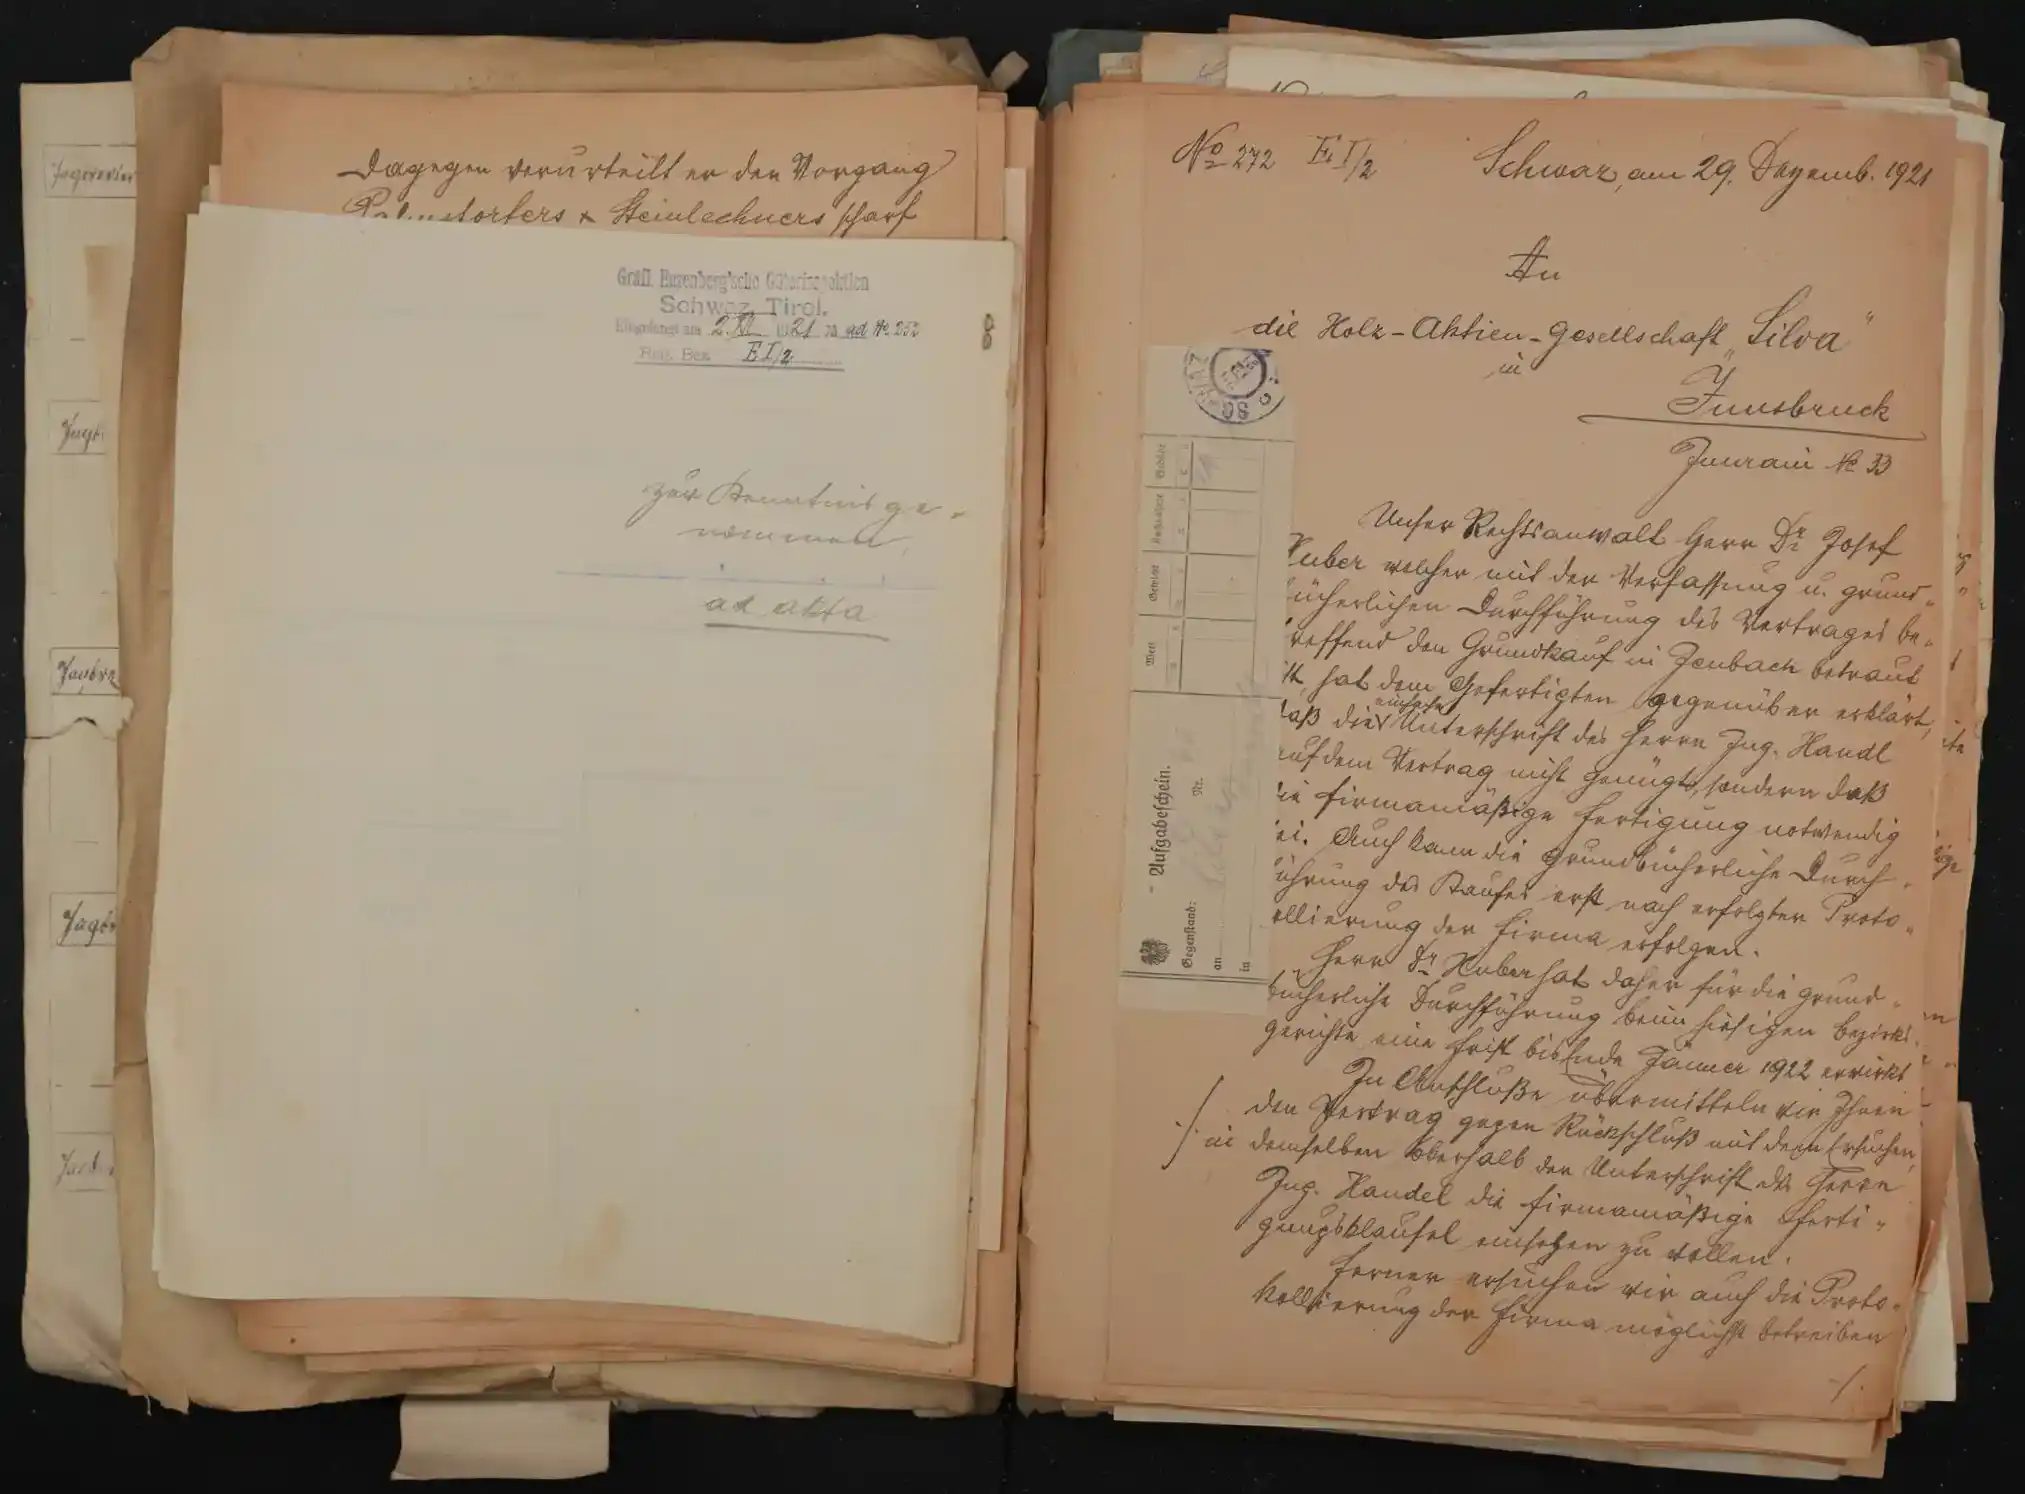 Jagdrevier
Jagd
Dagegen verurteilt er den Vorgang
& Steinlechners scharf
Gräfl. Enzenberg'sche Güterinspektion
Schwaz, Tirol.
Eingelangt am 2. XII 1921 ad No 252
Reg. Bez. E I/2
zur Kenntnis ge-
nommen,
ad acta
No 272 E I/2 Schwaz, am 29. Dezemb. 1921
An
die Holz-Aktien-Gesellschaft „Silva"
in
Innsbruck
Innrain No 33
Unser Rechtsanwalt Herr Dr. Josef
Huber welcher mit der Verfassung u. grund-
bücherlichen Durchführung des Vertrages be-
treffend den Grundkauf in Jenbach betraut
ist, hat dem Gefertigten gegenüber erklärt,
daß die einfache Unterschrift des Herrn Ing. Handl
auf dem Vertrag nicht genügt, sondern daß
die firmamäßige Fertigung notwendig
sei. Auch kann die grundbücherliche Durch-
führung des Kaufes erst nach erfolgter Proto-
kollierung der Firma erfolgen.
Herr Dr. Huber hat daher für die grund-
bücherliche Durchführung beim hiesigen Bezirks-
gerichte eine Frist bis Ende Jänner 1922 erwirkt
Im Anschluße übermitteln wir Ihnen
./. den Vertrag gegen Rückschluß mit dem Ersuchen,
in demselben oberhalb der Unterschrift des Herrn
Ing. Handel die firmamäßige Ferti-
gungsklausel einsetzen zu wollen.
Ferner ersuchen wir auch die Proto-
kollierung der Firma möglichst betreiben
./.
Aufgabeschein.
Nr.
Gegenstand:
an
in
Wert
Gewicht
Nachnahme
Gebühr